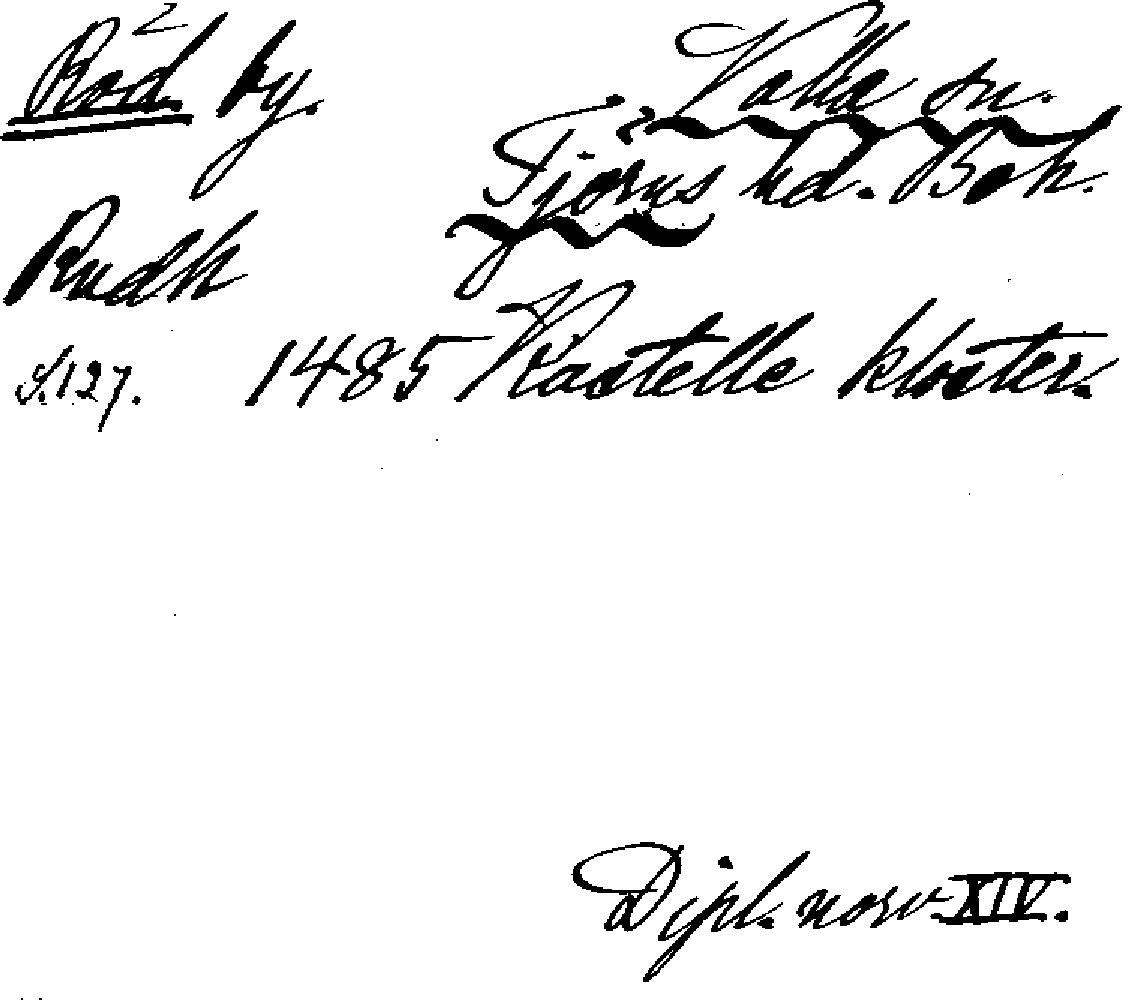 Röd. by. Valla sn.
Tjörns hd. Boh.
Rudh
S.127. 1485 Kastelle kloster.
Dipl. norv. XIV.